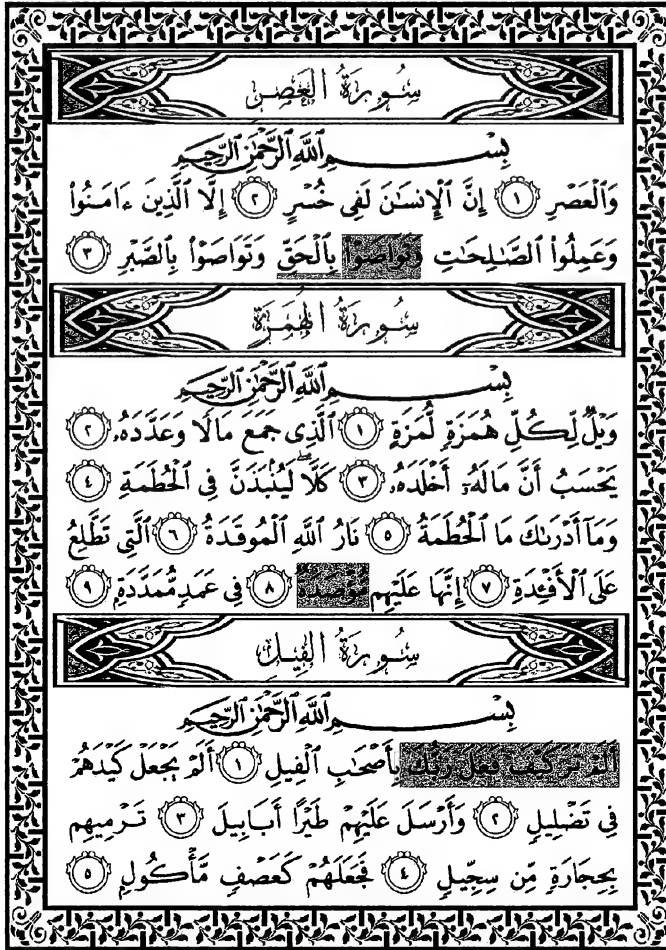 سُورَةُ الْعَصْرِ
بِسْمِ ٱللَّهِ ٱلرَّحْمَٰنِ ٱلرَّحِيمِ
وَٱلْعَصْرِ ١ إِنَّ ٱلْإِنسَٰنَ لَفِى خُسْرٍ ٢ إِلَّا ٱلَّذِينَ ءَامَنُوا۟
وَعَمِلُوا۟ ٱلصَّٰلِحَٰتِ وَتَوَاصَوْا۟ بِٱلْحَقِّ وَتَوَاصَوْا۟ بِٱلصَّبْرِ ٣
سُورَةُ الْهُمَزَةِ
بِسْمِ ٱللَّهِ ٱلرَّحْمَٰنِ ٱلرَّحِيمِ
وَيْلٌ لِّكُلِّ هُمَزَةٍ لُّمَزَةٍ ١ ٱلَّذِى جَمَعَ مَالًا وَعَدَّدَهُۥ ٢
يَحْسَبُ أَنَّ مَالَهُۥٓ أَخْلَدَهُۥ ٣ كَلَّا ۖ لَيُنۢبَذَنَّ فِى ٱلْحُطَمَةِ ٤
وَمَآ أَدْرَىٰكَ مَا ٱلْحُطَمَةُ ٥ نَارُ ٱللَّهِ ٱلْمُوقَدَةُ ٦ ٱلَّتِى تَطَّلِعُ
عَلَى ٱلْأَفْـِٔدَةِ ٧ إِنَّهَا عَلَيْهِم مُّؤْصَدَةٌ ٨ فِى عَمَدٍ مُّمَدَّدَةٍۭ ٩
سُورَةُ الْفِيلِ
بِسْمِ ٱللَّهِ ٱلرَّحْمَٰنِ ٱلرَّحِيمِ
أَلَمْ تَرَ كَيْفَ فَعَلَ رَبُّكَ بِأَصْحَٰبِ ٱلْفِيلِ ١ أَلَمْ يَجْعَلْ كَيْدَهُمْ
فِى تَضْلِيلٍ ٢ وَأَرْسَلَ عَلَيْهِمْ طَيْرًا أَبَابِيلَ ٣ تَرْمِيهِم
بِحِجَارَةٍ مِّن سِجِّيلٍ ٤ فَجَعَلَهُمْ كَعَصْفٍ مَّأْكُولٍۭ ٥